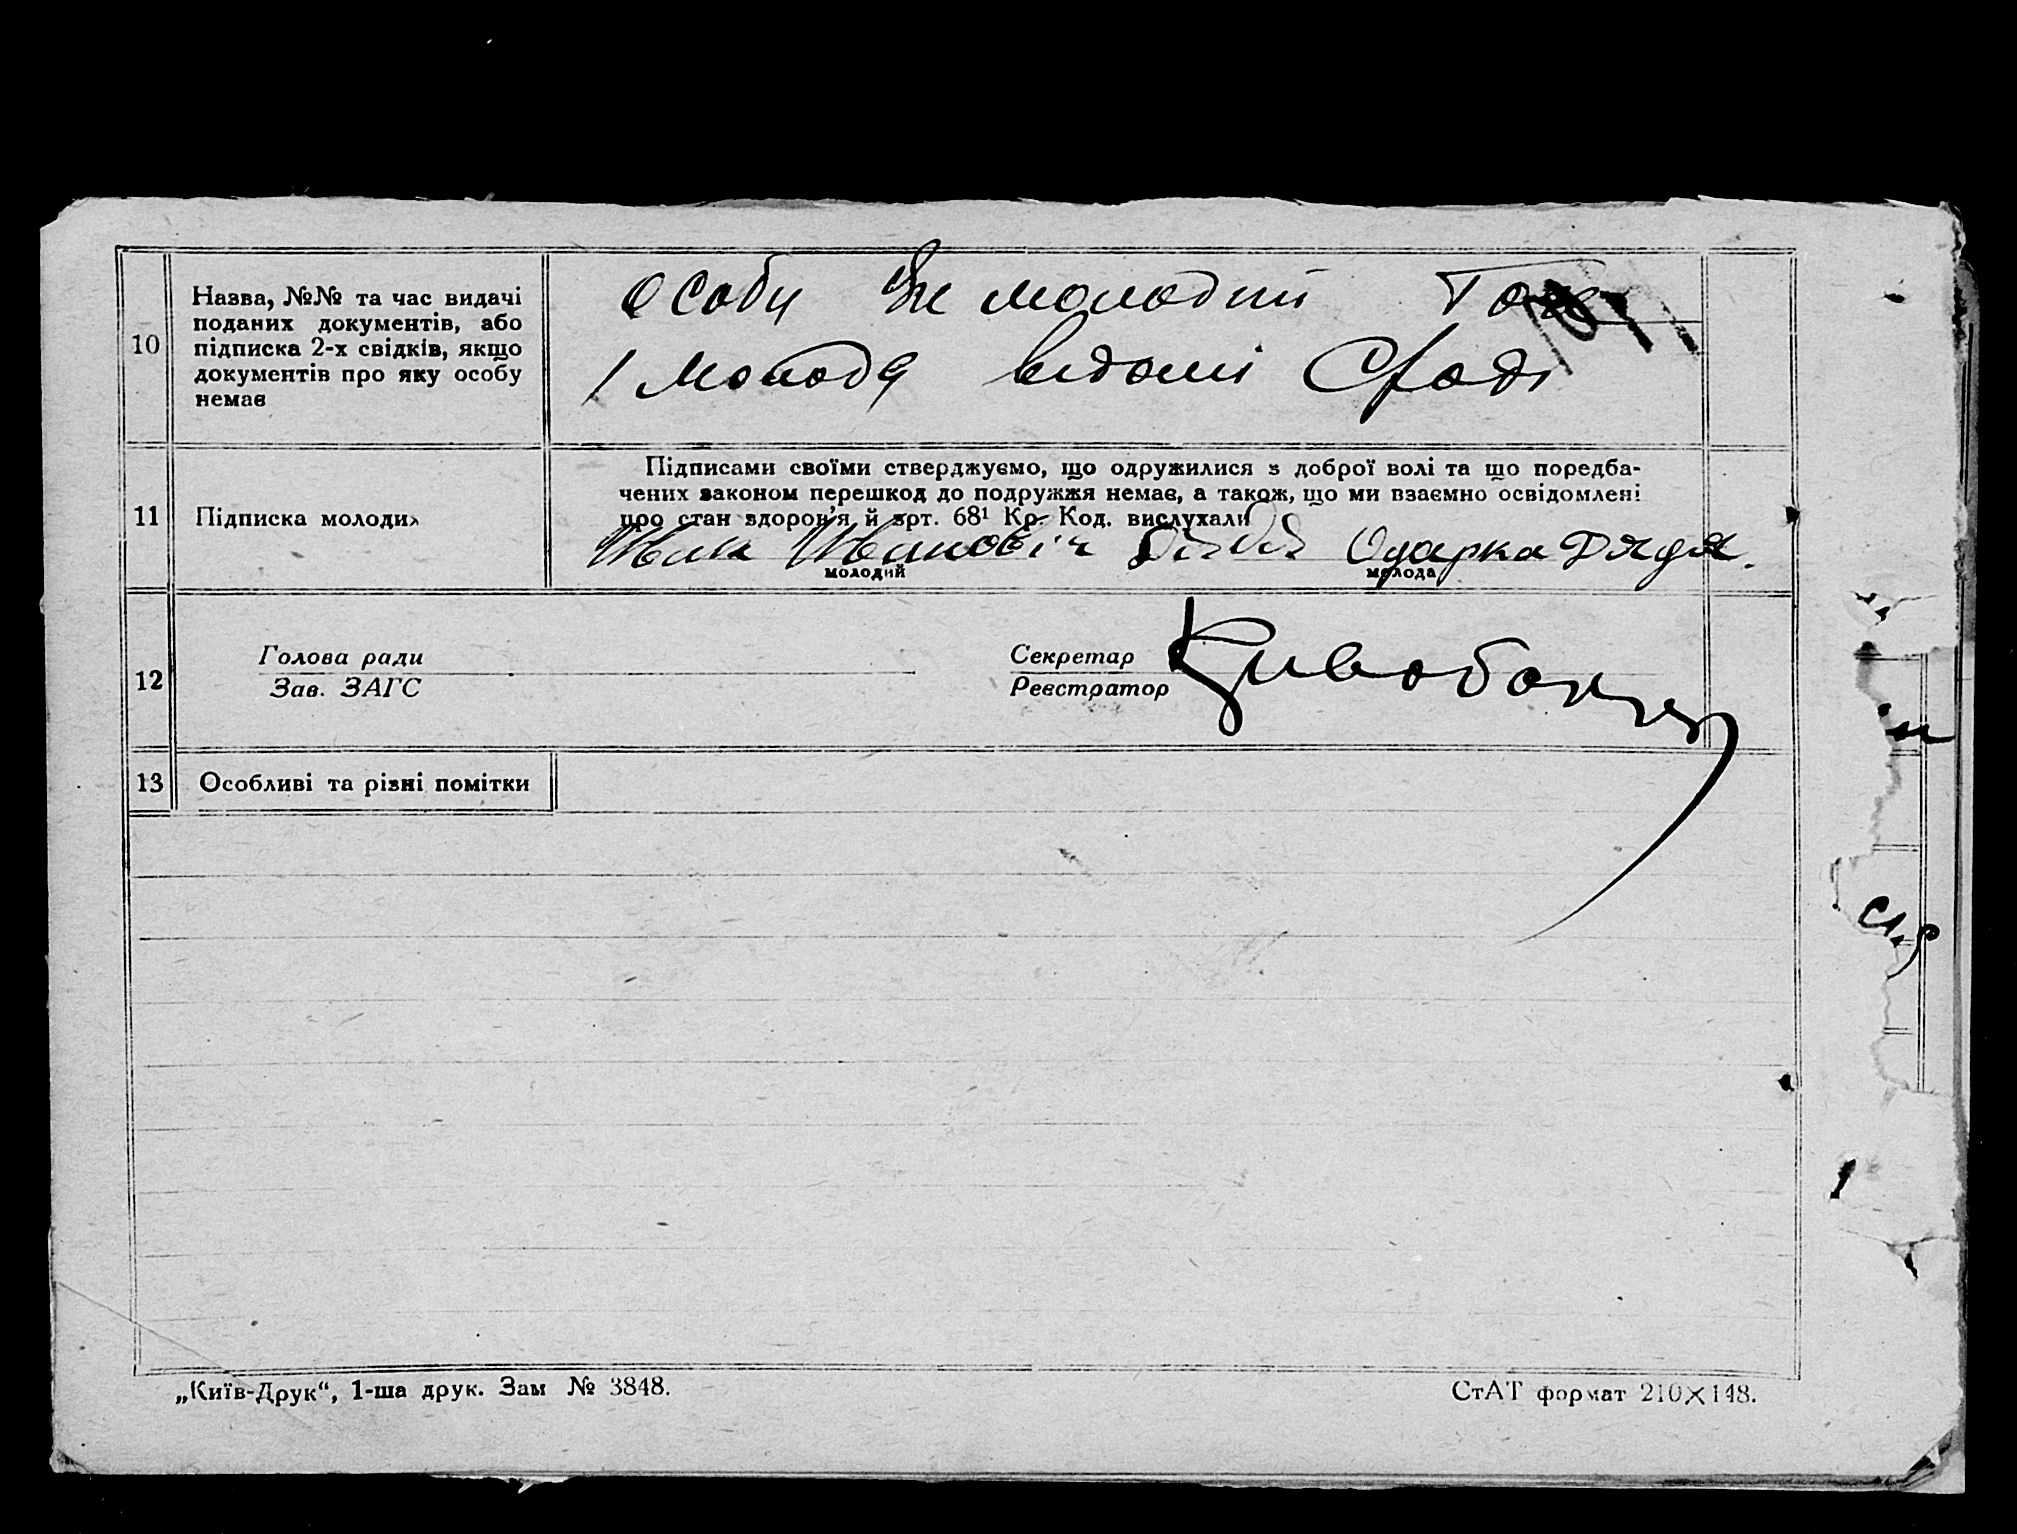 10
Назва, №№ та час видачі
поданих документів, або
підписка 2-х свідків, якщо
документів про яку особу
немає
Особи молодий
і молода відомі
11
Підписка молодих
Підписами своїми стверджуємо, що одружилися з доброї волі та що поредба-
чених законом перешкод до подружжя немає, а також, що ми взаємно освідомлені
про стан здоров'я й арт. 68¹ Кр. Код. вислухали
Иван Иванович Одарка Дядя.
молодий молода
12
Голова ради
Зав. ЗАГС
Секретар
Реєстратор
13
Особливі та різні помітки
„Київ-Друк“, 1-ша друк. Зам № 3848.
СтАТ формат 210×148.